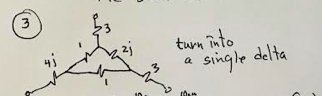 3
3
1
2j
4j
3
1
turn into
a single delta